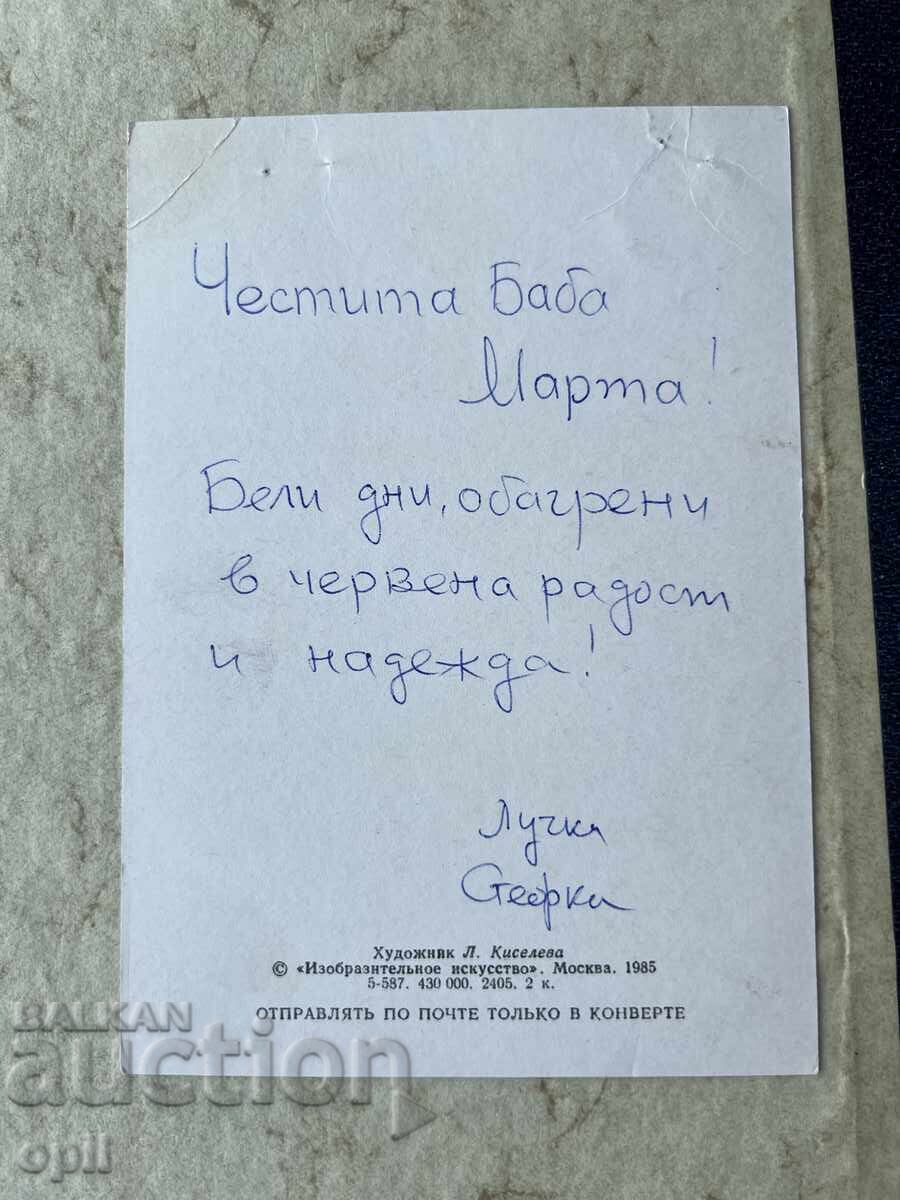 Честита Баба
Марта!
Бели дни, обагрени
в червена радост
и надежда!
Лучка
Стефка
Художник Л. Киселева
© «Изобразительное искусство». Москва. 1985
5-587. 430 000. 2405. 2 к.
ОТПРАВЛЯТЬ ПО ПОЧТЕ ТОЛЬКО В КОНВЕРТЕ
BALKAN
auction
opii